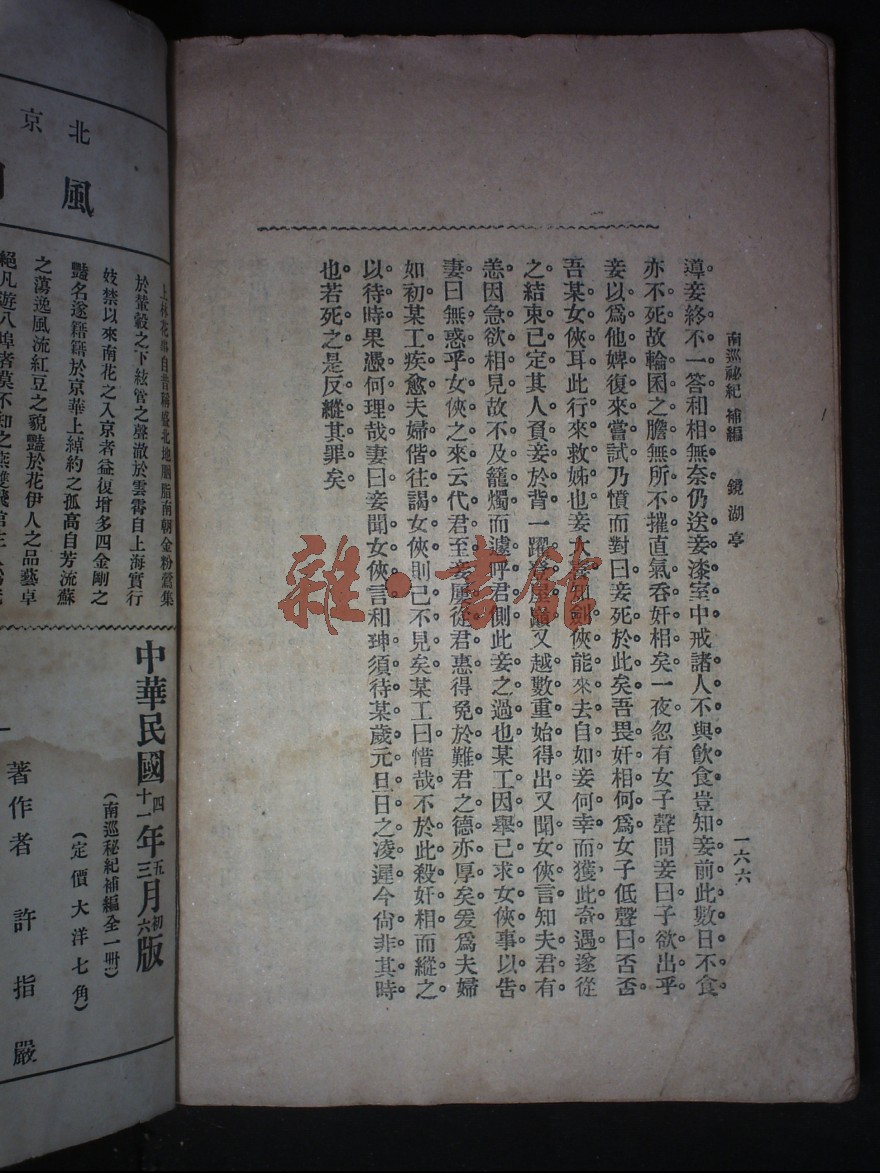 南巡祕紀 補編 鏡湖亭 一六六
導妾終不一答和相無奈仍送妾漆室中戒諸人不與飲食豈知妾前此數日不食
亦不死故輪囷之膽無所不摧直氣吞奸相矣一夜忽有女子聲問妾曰子欲出乎
妾以爲他婢復來嘗試乃憤而對曰妾死於此矣吾畏奸相何爲女子低聲曰否否
吾某女俠耳此行來救姊也妾大喜知劍俠能來去自如妾何幸而獲此奇遇遂從
之結束已定其人負妾於背一躍登屋巔又越數重始得出又聞女俠言知夫君有
恙因急欲相見故不及籠燭而遽呼君側此妾之過也某工因舉已求女俠事以告
妻曰無惑乎女俠之來云代君至妾屢從君惠得免於難君之德亦厚矣爰爲夫婦
如初某工疾愈夫婦偕往謁女俠則已不見矣某工曰惜哉不於此殺奸相而縱之
以待時果憑何理哉妻曰妾聞女俠言和珅須待某歲元旦日之凌遲今尙非其時
也若死之是反縱其罪矣
雜·書館
北京
風
上林花
自昔稱盛北地胭脂南朝金粉薈集
於輦轂之下絃管之聲澈於雲霄自上海實行
妓禁以來南花之入京者益復增多四金剛之
豔名遂籍籍於京華上綽約之孤高自芳流蘇
之蕩逸風流紅豆之貌豔於花伊人之品藝卓
絕凡遊八埠者莫不知之
中華民國四年五月初版
十一年三月六版
(南巡秘紀補編全一冊)
(定價大洋七角)
著作者 許指嚴